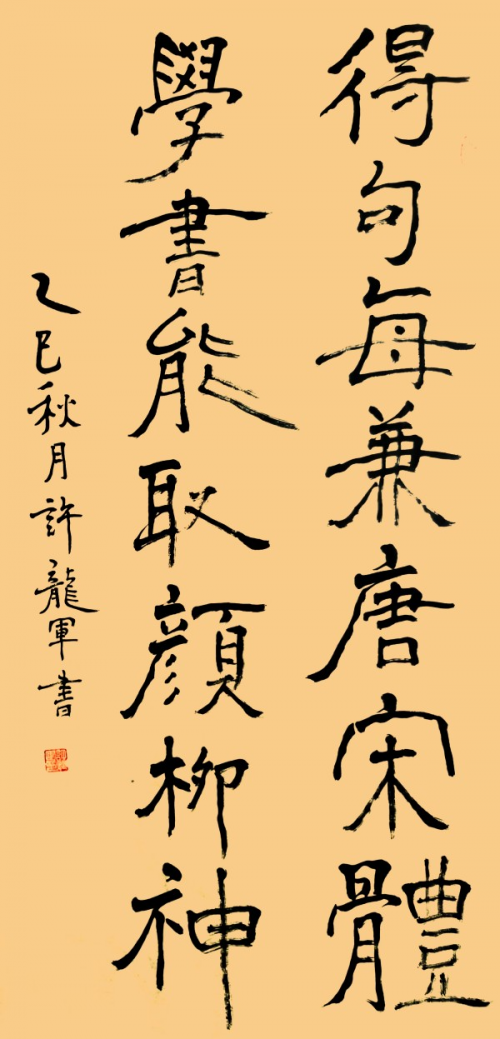 得句每兼唐宋體
學書能取顏柳神
乙巳秋月許龍軍書